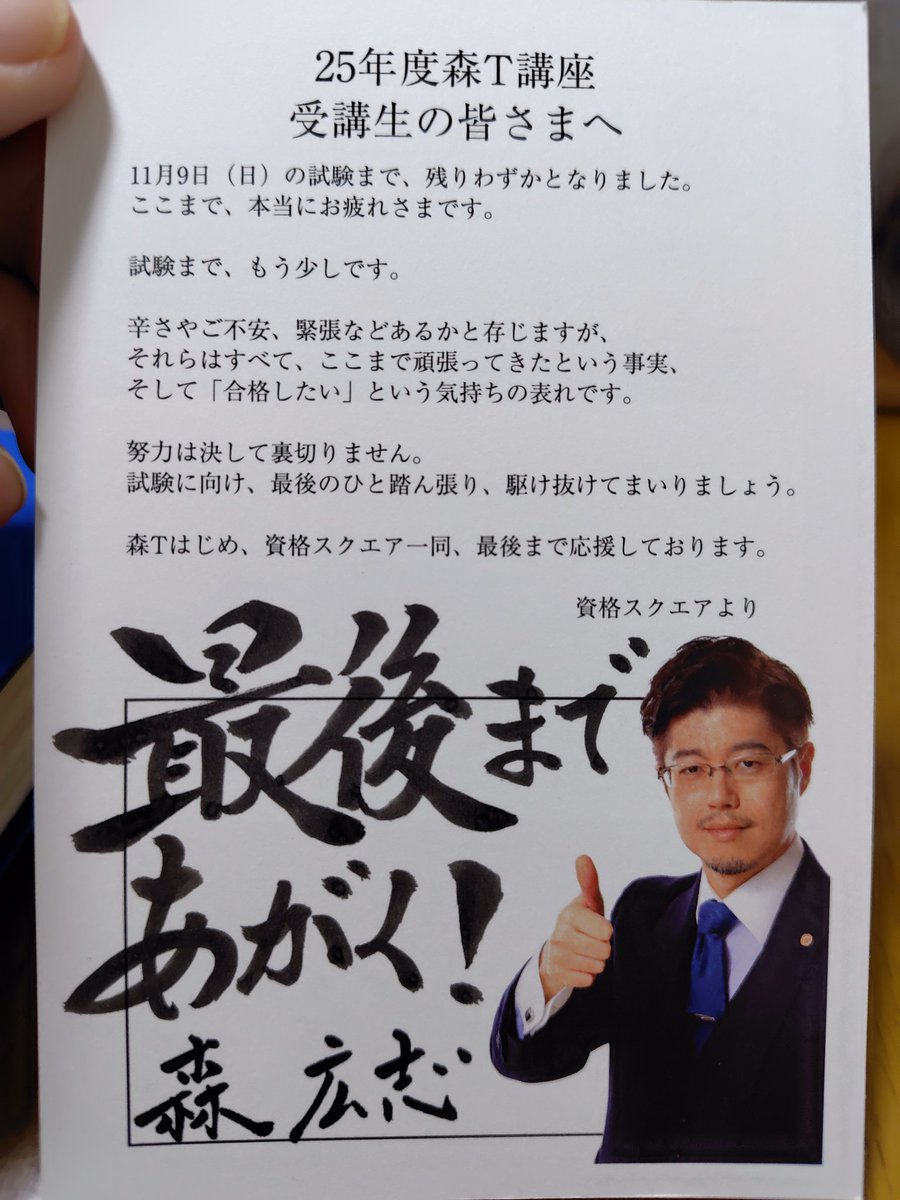 25年度森T講座
受講生の皆さまへ
11月9日（日）の試験まで、残りわずかとなりました。
ここまで、本当にお疲れさまです。
試験まで、もう少しです。
辛さやご不安、緊張などあるかと存じますが、
それらはすべて、ここまで頑張ってきたという事実、
そして「合格したい」という気持ちの表れです。
努力は決して裏切りません。
試験に向け、最後のひと踏ん張り、駆け抜けてまいりましょう。
森Tはじめ、資格スクエア一同、最後まで応援しております。
資格スクエアより
最後まで
あがく！
森 広志